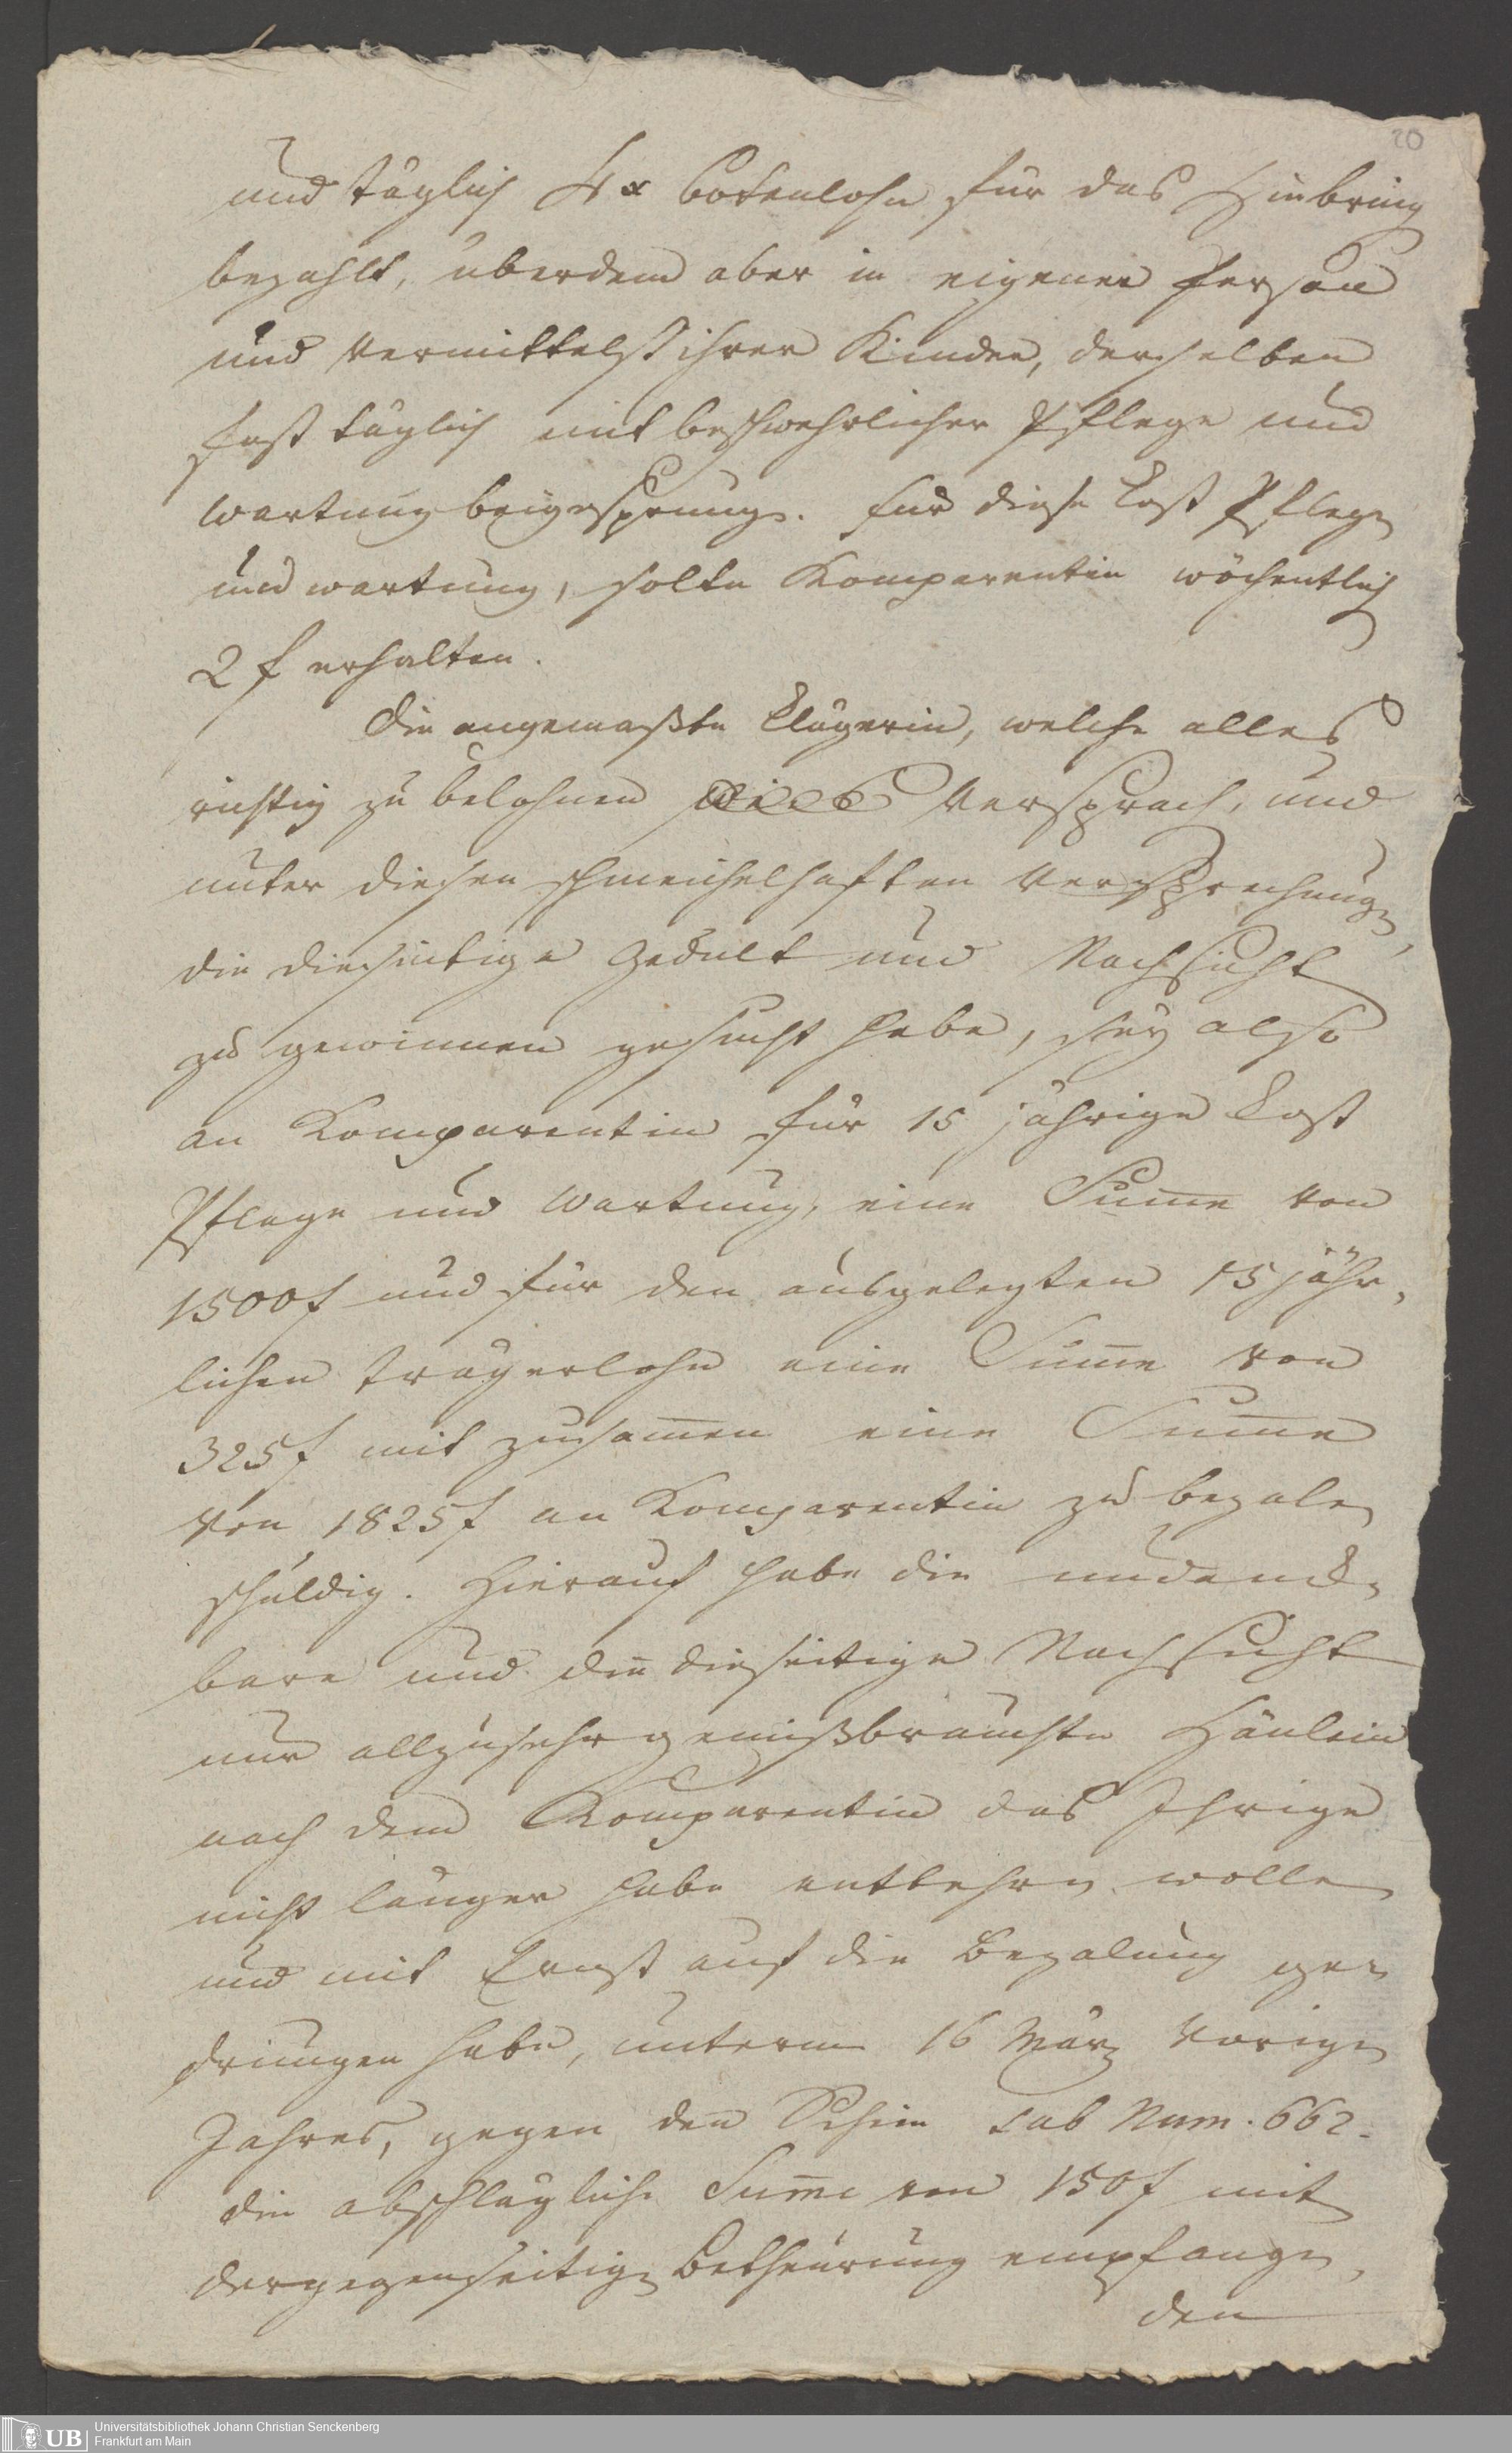 20
und täglich 4 x botenlohn für das Hinbring
bezahlt, überdem aber in eigener Person
und vermittelst ihrer Kinder, derselben
fast täglich mit beschwehrlicher Pflege und
wartung beigesprung. für diese Kost Pflege
und wartung, solte Komparentin wöchentlich
2 f erhalten.
die angemaßte Klägerin, welche alles
richtig zu belohnen versprach, und
unter diesen schmeichelhaften Versprechung
die diesseitige Gedult und Nachsicht
zu gewinnen gesucht habe, sey also
an Komparentin für 15 jährige Kost
Pflege und Wartung, eine Sum̅e von
1500 f und für den ausgelegten 15 jähr,
lichen trägerlohn eine Sum̅e von
325 f mit zusam̅en eine Sum̅e
von 1825 f an Komparentin zu bezalen
schuldig. Hierauf habe die undank,
bare und die dieseitige Nachsicht
nur allzusehr gemißbrauchte Hänlein
nach dem Komparentin das Ihrige
nicht länger habe entbehren wollen
und mit Ernst auf die Bezalung ge,
drungen habe, unterm 16 März vorigen
Jahres, gegen den Schein sub Num. 662.
die abschlägliche Sum̅e von 150 f mit
der gegenseitigen Betheurung empfangen,
den
UB Universitätsbibliothek Johann Christian Senckenberg
Frankfurt am Main